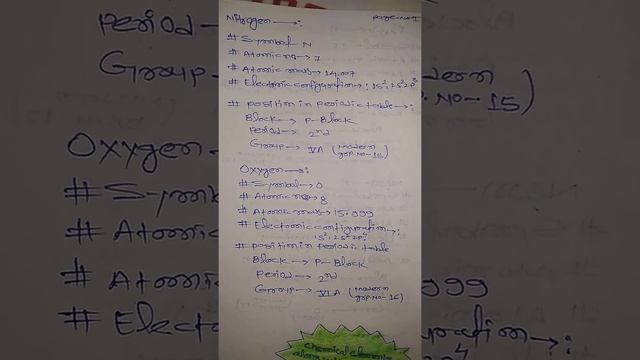 Nitrogen ⟶: Page-No-1
# Symbol- N
# Atomic no→ 7
# Atomic mass → 14.007
# Electronic configuration→: 1s² 2s² 2p³
# Position in periodic table→:
Block → P-Block
Period → 2nd
Group → VA (modern grp. No- 15)
Oxygen ⟶:
# Symbol → O
# Atomic no→ 8
# Atomic mass → 15.999
# Electronic configuration→:
1s² 2s² 2p⁴
# Position in periodic table
Block → P-Block
Period → 2nd
Group → VI A (modern grp. No- 16)
chemical elements